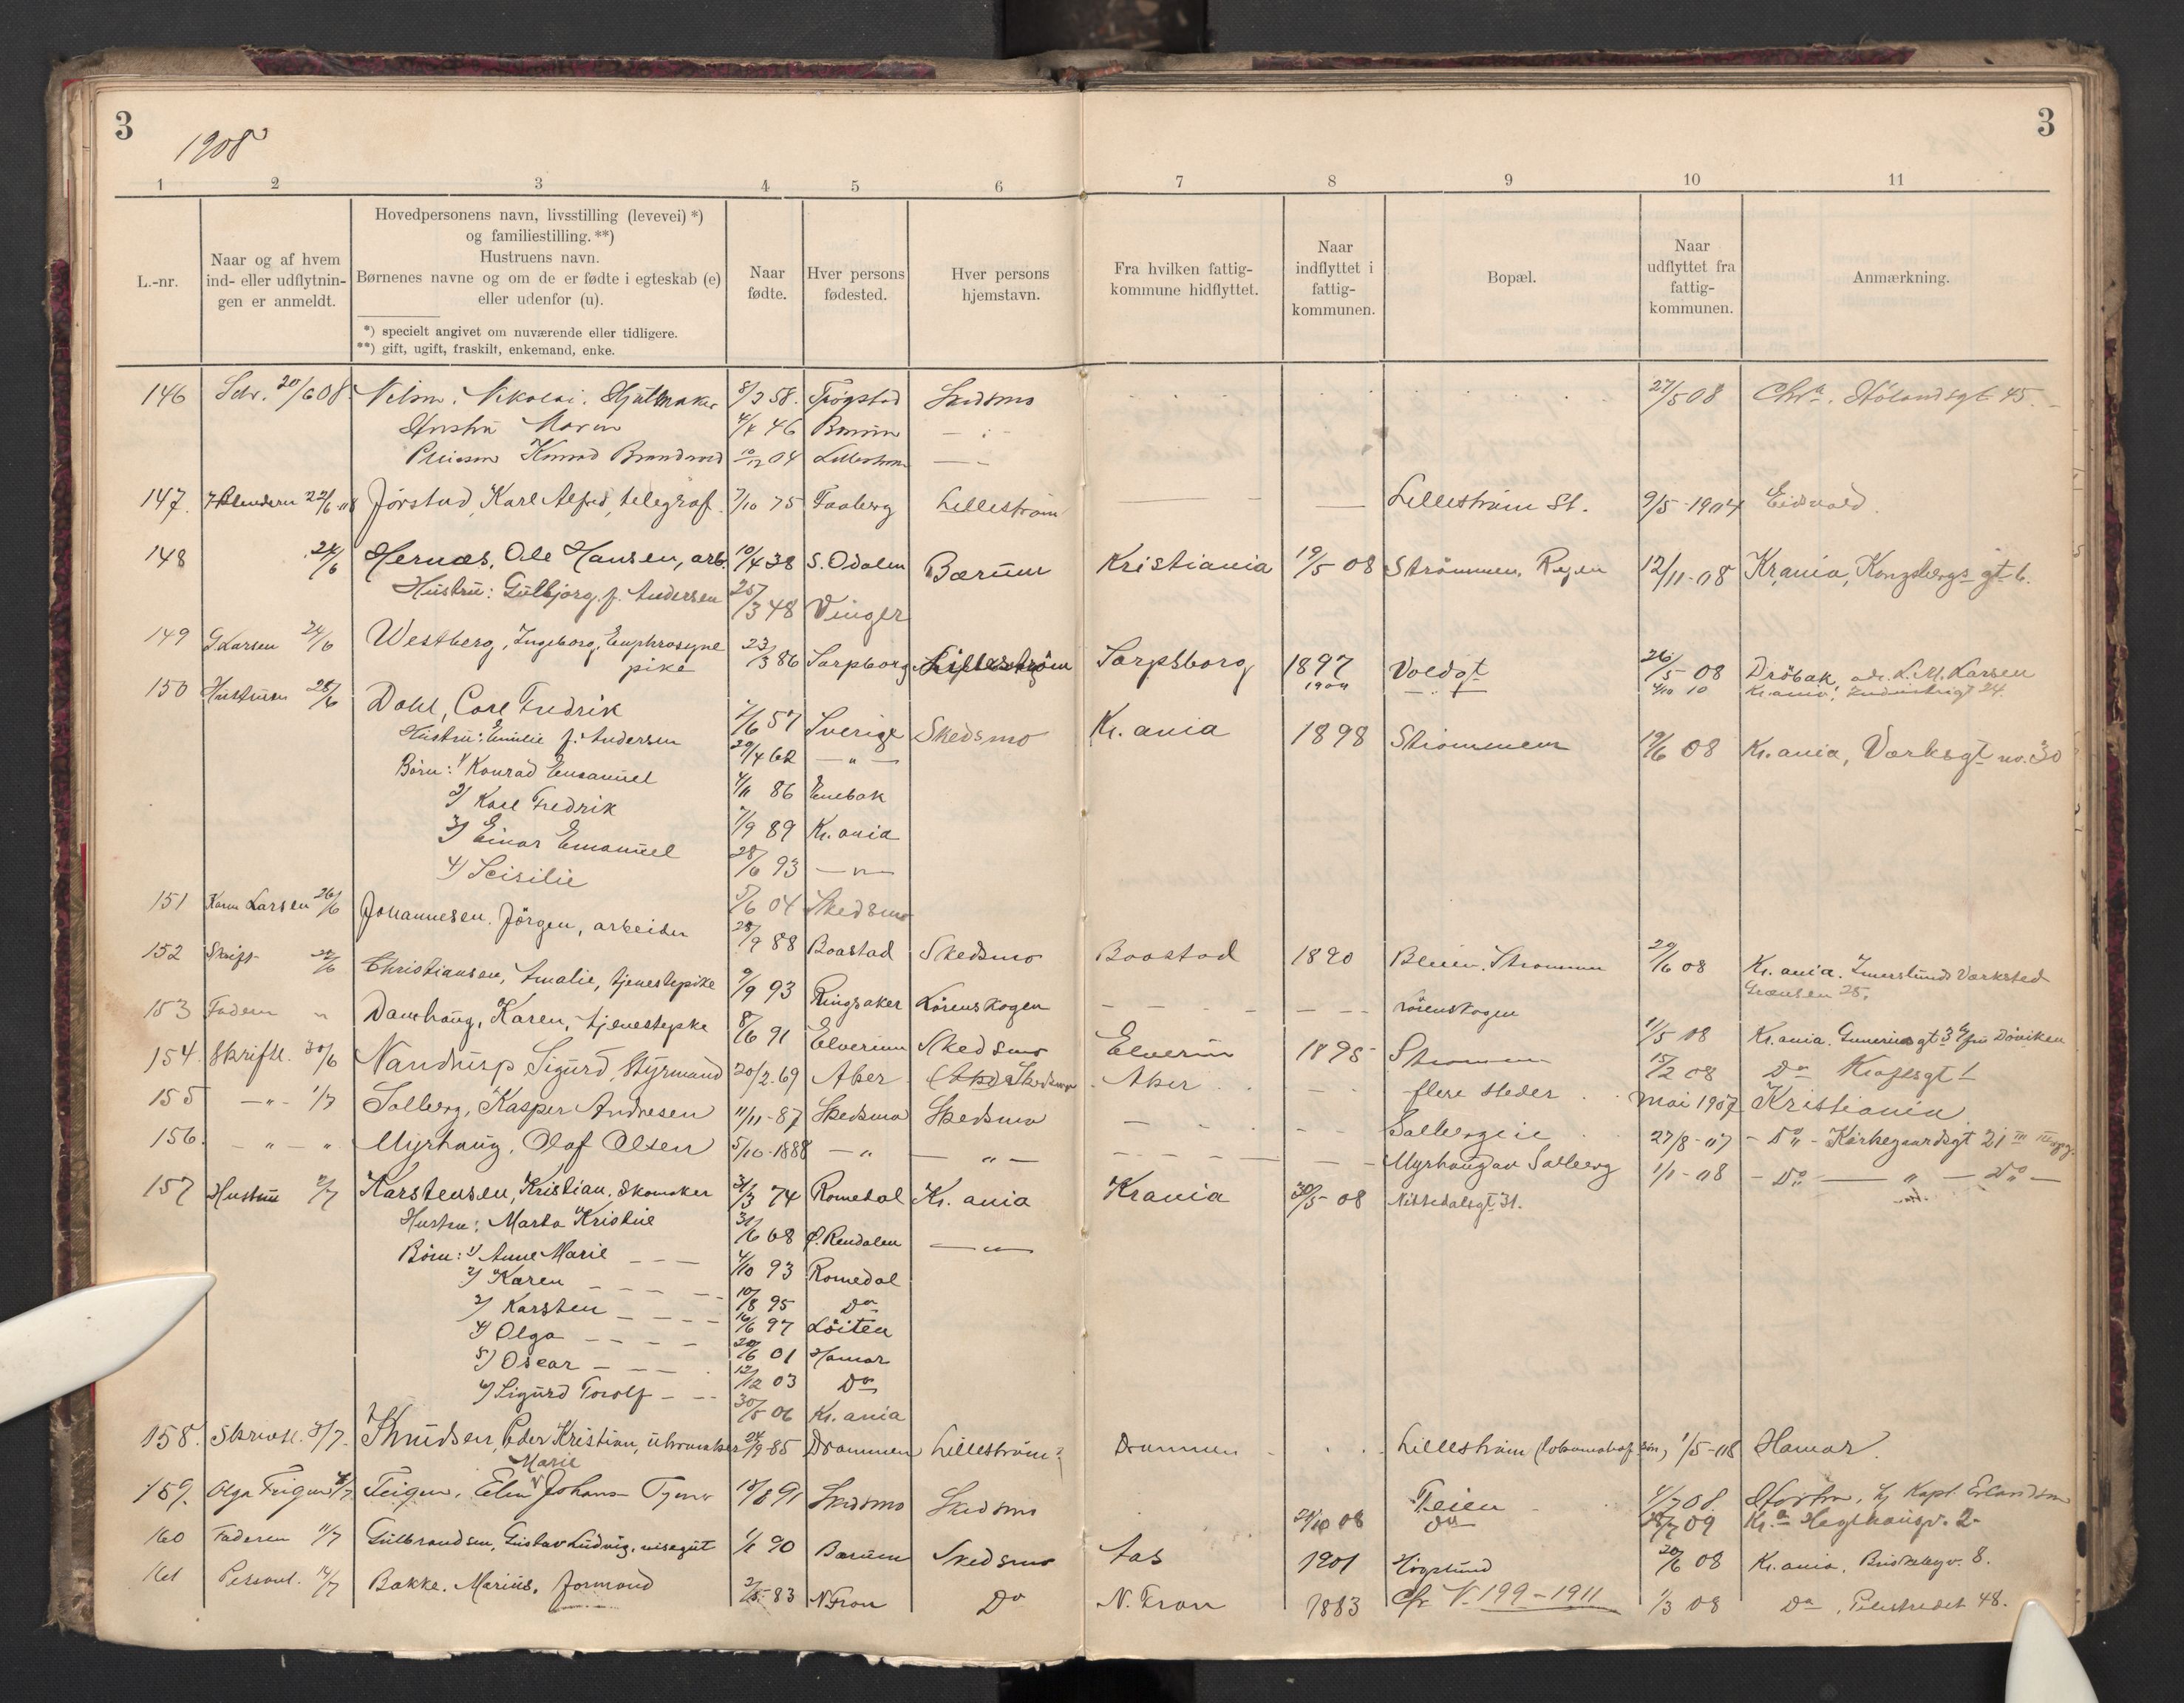 3
3
1908
1 2 3 4 5 6 7 8 9 10 11
L.-nr.
Naar og af hvem
ind- eller udflytnin-
gen er anmeldt.
Hovedpersonens navn, livsstilling (levevei) *)
og familiestilling. **)
Hustruens navn.
Børnenes navne og om de er fødte i egteskab (e)
eller udenfor (u).
*) specielt angivet om nuværende eller tidligere.
**) gift, ugift, fraskilt, enkemand, enke.
Naar
fødte.
Hver persons
fødested.
Hver persons
hjemstavn.
Fra hvilken fattig-
kommune hidflyttet.
Naar
indflyttet i
fattig-
kommunen.
Bopæl.
Naar
udflyttet fra
fattig-
kommunen.
Anmærkning.
146 20/6 08 Nikolai. Hjulmaker 8/3 58. Trøgstad Skedsmo 27/5 08 Chr.a. Hölandsgt 45.
Hustru Maren 46 Bærum — " —
Pleiesøn Konrad 10/12 04 Lillestrøm — " —
147. 22/6-08 Jörstad, Karl Alfred, telegraf. 7/10 75 Faaberg Lilleström — — Lilleström St. 9/5-1904 Eidsvold.
148 24/6 Hernæs, Ole Hansen, arb. 10/4 38 S. Odalen Bærum Kristiania 19/5 08 Strömmen, 12/11-08 Kr.ania, Kongsbergs gt 6.
Hustru: Gulbjørg f. Andersen 25/3 48 Vinger
149 G. Larsen 24/6 Westberg, Ingeborg, Euphrosyne 23/3 86 Sarpborg Lilleström Sarpsborg 1897 Voldgt 26/5-08 Dröbak, adr. L. M. Larsen
pike 1904 — " — 4/10 10 Kr.ania: Industrigt 24.
150 Hustruen 25/6 Dahl, Carl Fredrik 7/6 57 Sverige Skedsmo Kr.ania 1898 Strömmen 19/6 08 Kr.ania, Værksgt no. 30
Hustru: Emilie f. Andersen 29/4 62 — " —
Børn: 1) Konrad Emanuel 4/11 86 Enebak
2) Karl Fredrik 7/9 89 Kr.ania
3) Einar Emanuel 28/6 93 — " —
4) Scisilie 5/6 04 Skedsmo
151 Karen Larsen 26/6 Johannesen. Jörgen, arbeider 28/9 88 Baastad Skedsmo Baastad 1890 Strømmen 29/6 08 Kr.ania. Imerslunds Værksted
Grænsen 25.
152 Skrift 22/6 Christiansen, Amalie, tjenestepike 9/9 93 Ringsaker Lørenskogen — — Lörenskogen 1/5 08 Kr.ania. Gunerius gt 3 4 fru Döviken
153 Faderen " Damhaug, Karen, tjenestepike 8/6 91 Elverum Skedsmo Elverum 1895 Strømmen 15/2 08 Do Kraftsgt 1
154. Skriftl. 30/6 Nandrup Sigurd, Styrmand 20/2.69 Aker Skedsmo Aker flere steder mai 1907 Kristiania
155 — " — 1/7 Solberg, Kasper Andresen 11/11-87 Skedsmo Skedsmo — Solbergeie 27/8-07 — Do — Kirkegaardsgt 21 III
156. — " — " Myrhaug, Olaf Olsen 5/10-1888 — " — — " — — Myrhaug av Solberg 1/1-08 — Do — " — Do —
157 Hustru 2/7 Karstensen, Kristian, Skomaker 31/3 74 Romedal Kr.ania Kr.ania 30/5-08 Nittedalsgt 31.
Hustru: Marta Kristine 31/6 68 Ø. Rendalen — " —
Børn: 1) Anne Marie — — — 4/10 93 Romedal
2) Karen — — — 10/8 95 Do
3) Karsten — — — 16/6 97 Löiten
4) Olga — — — 20/6 01 Hamar
5) Oscar — — — 12/12 03 Do
6) Sigurd Torolf — — 30/5 06 Kr.ania
158. Skriftl. 3/7. Knudsen, Peder Kristian, uhrmaker 24/9-85 Drammen Lilleström? Drammen Lilleström 1/5-08 Hamar.
Marie
159. Olga Feigen 4/7 Feigen, Elen Johans 18/8 91 Skedsmo Skedsmo Feien 1/7 08. Horten, hj Kapt. Erlandsen
24/10 08 Do 28/7 09 Kr.a Hegdehaugsv. 2
160 Faderen 11/7 Gulbrandsen, Gustav Ludvig, visergut 1/1 90 Bærum Skedsmo Aas 1901 Høgslund 20/6 08 Kr.ania. Briskebyv. 8.
161 Personl. 14/7 Bakke. Marius. formand 2/5-83 N. Fron Do N. Fron 1883 Cfr V. 199-1911 1/3 08 Do, Pilestrædet 48.